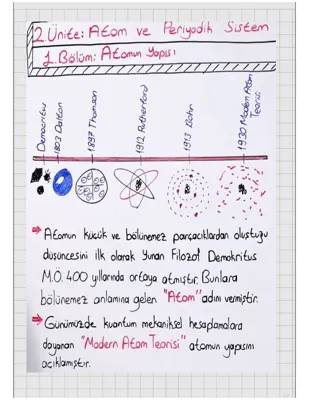 2. Ünite: Atom ve Periyodik Sistem
1. Bölüm: Atomun Yapısı
Democritus
1803 Dalton
1897 Thomson
1912 Rutherford
1913 Bohr
1930 Modern Atom
Teorisi
⇒ Atomun küçük ve bölünemez parçacıklardan oluştuğu
düşüncesini ilk olarak Yunan Filozof Demokritus
M.Ö. 400 yıllarında ortaya atmıştır. Bunlara
bölünemez anlamına gelen "Atom" adını vermiştir.
⇒ Günümüzde kuantum mekaniksel hesaplamalara
dayanan "Modern Atom Teorisi" atomun yapısını
açıklamıştır.